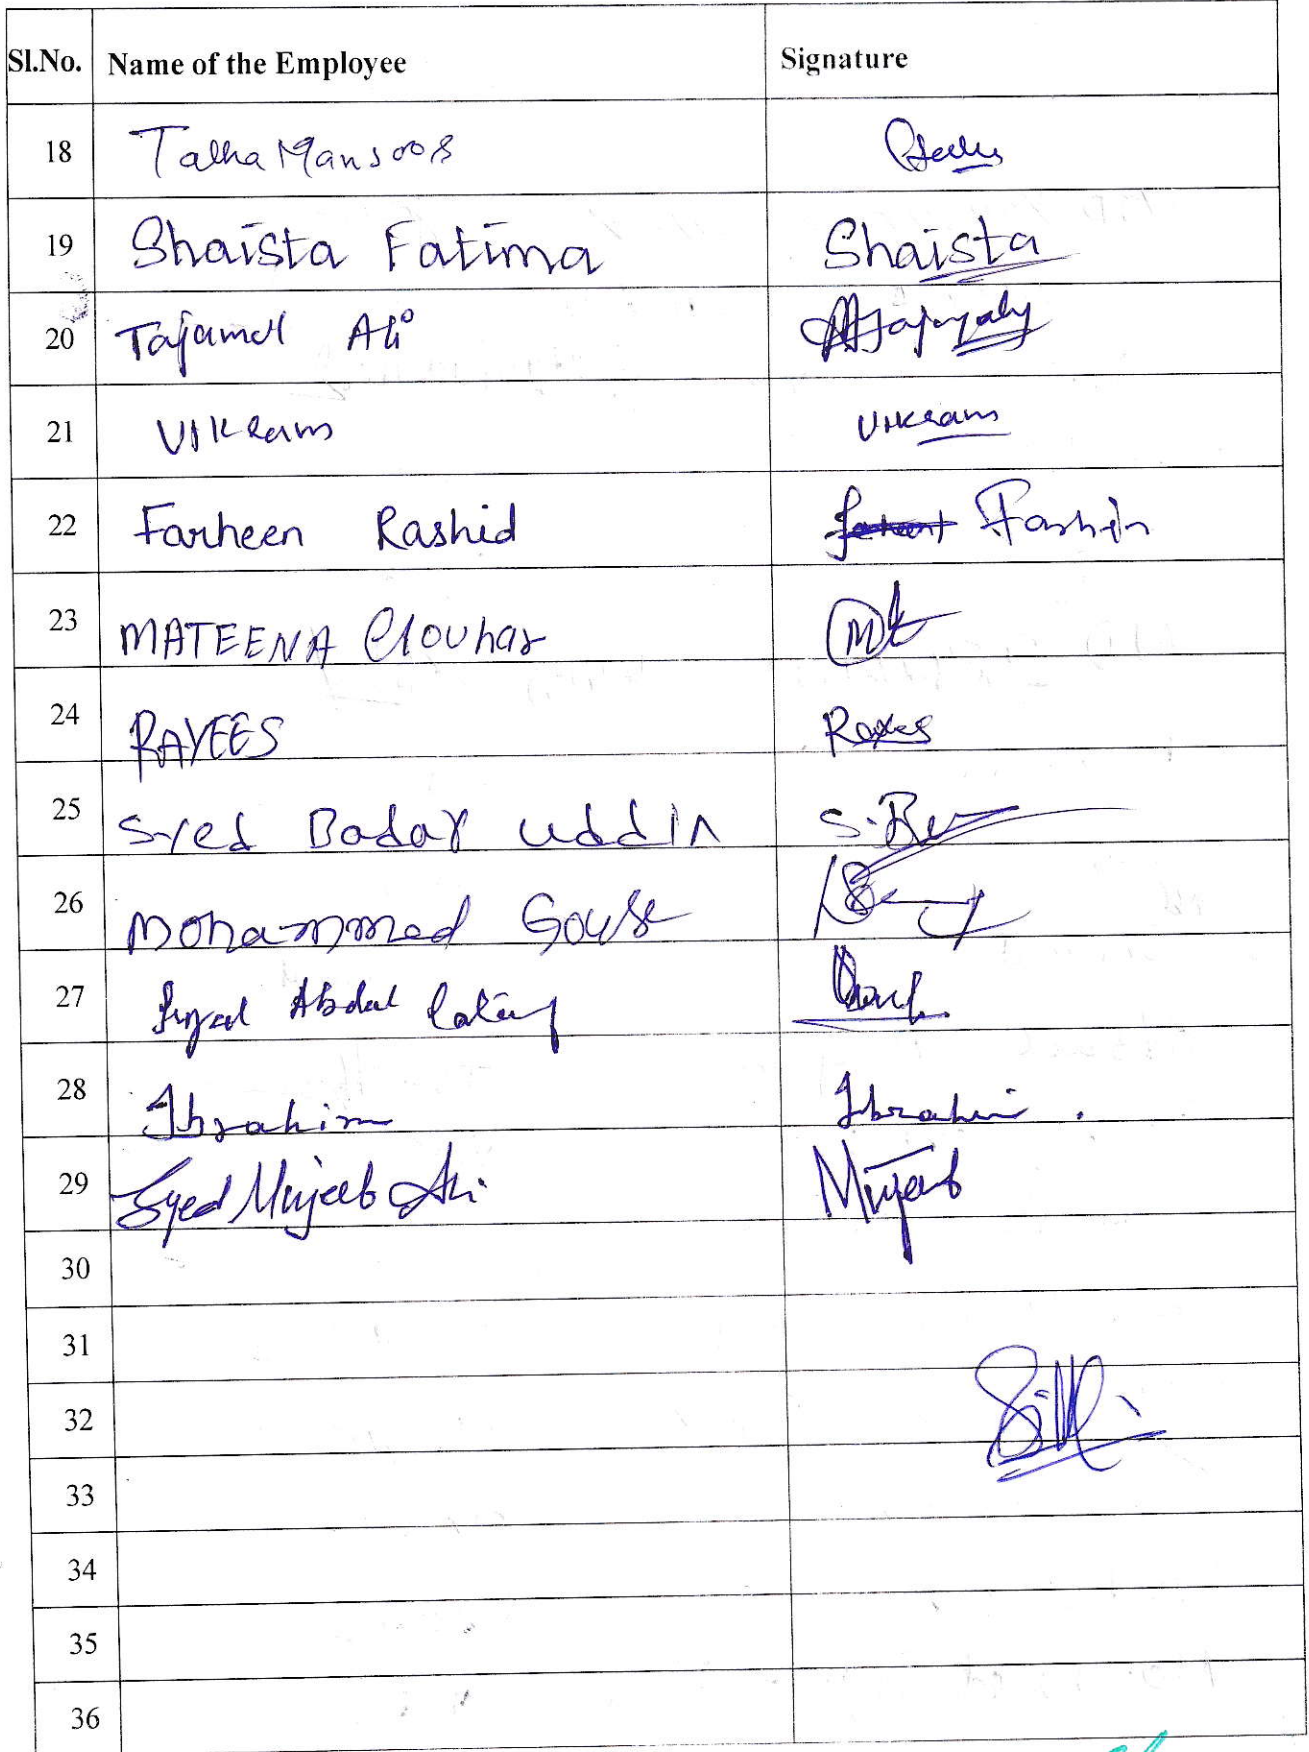 Sl.No. Name of the Employee Signature
18 Talha Mansoor
19 Shaista Fatima Shaista
20 Tajamul Ali
21 Vikram Vikram
22 Farheen Rashid
23 MATEENA
24 RAYEES
25 Syed Badar uddin S.
26 Mohammed Gouse
27 Syed Abdul
28 Ibrahim Ibrahim
29 Syed Mujeeb Ali Mujeeb
30
31
32
33
34
35
36